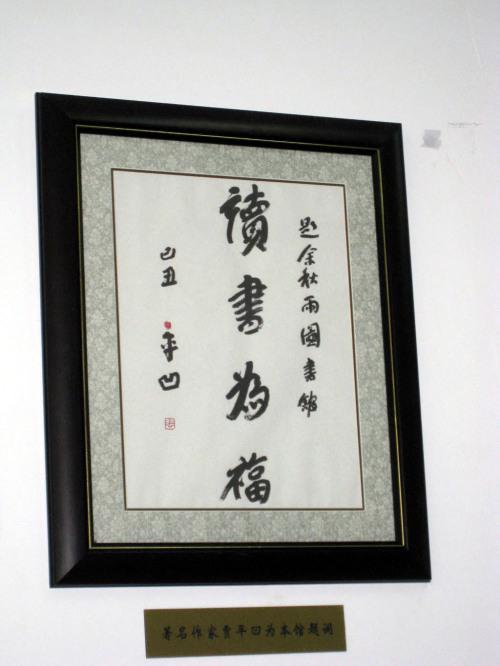 题余秋雨圖书館
讀書為福
己丑
平凹
著名作家贾平凹为本馆题词